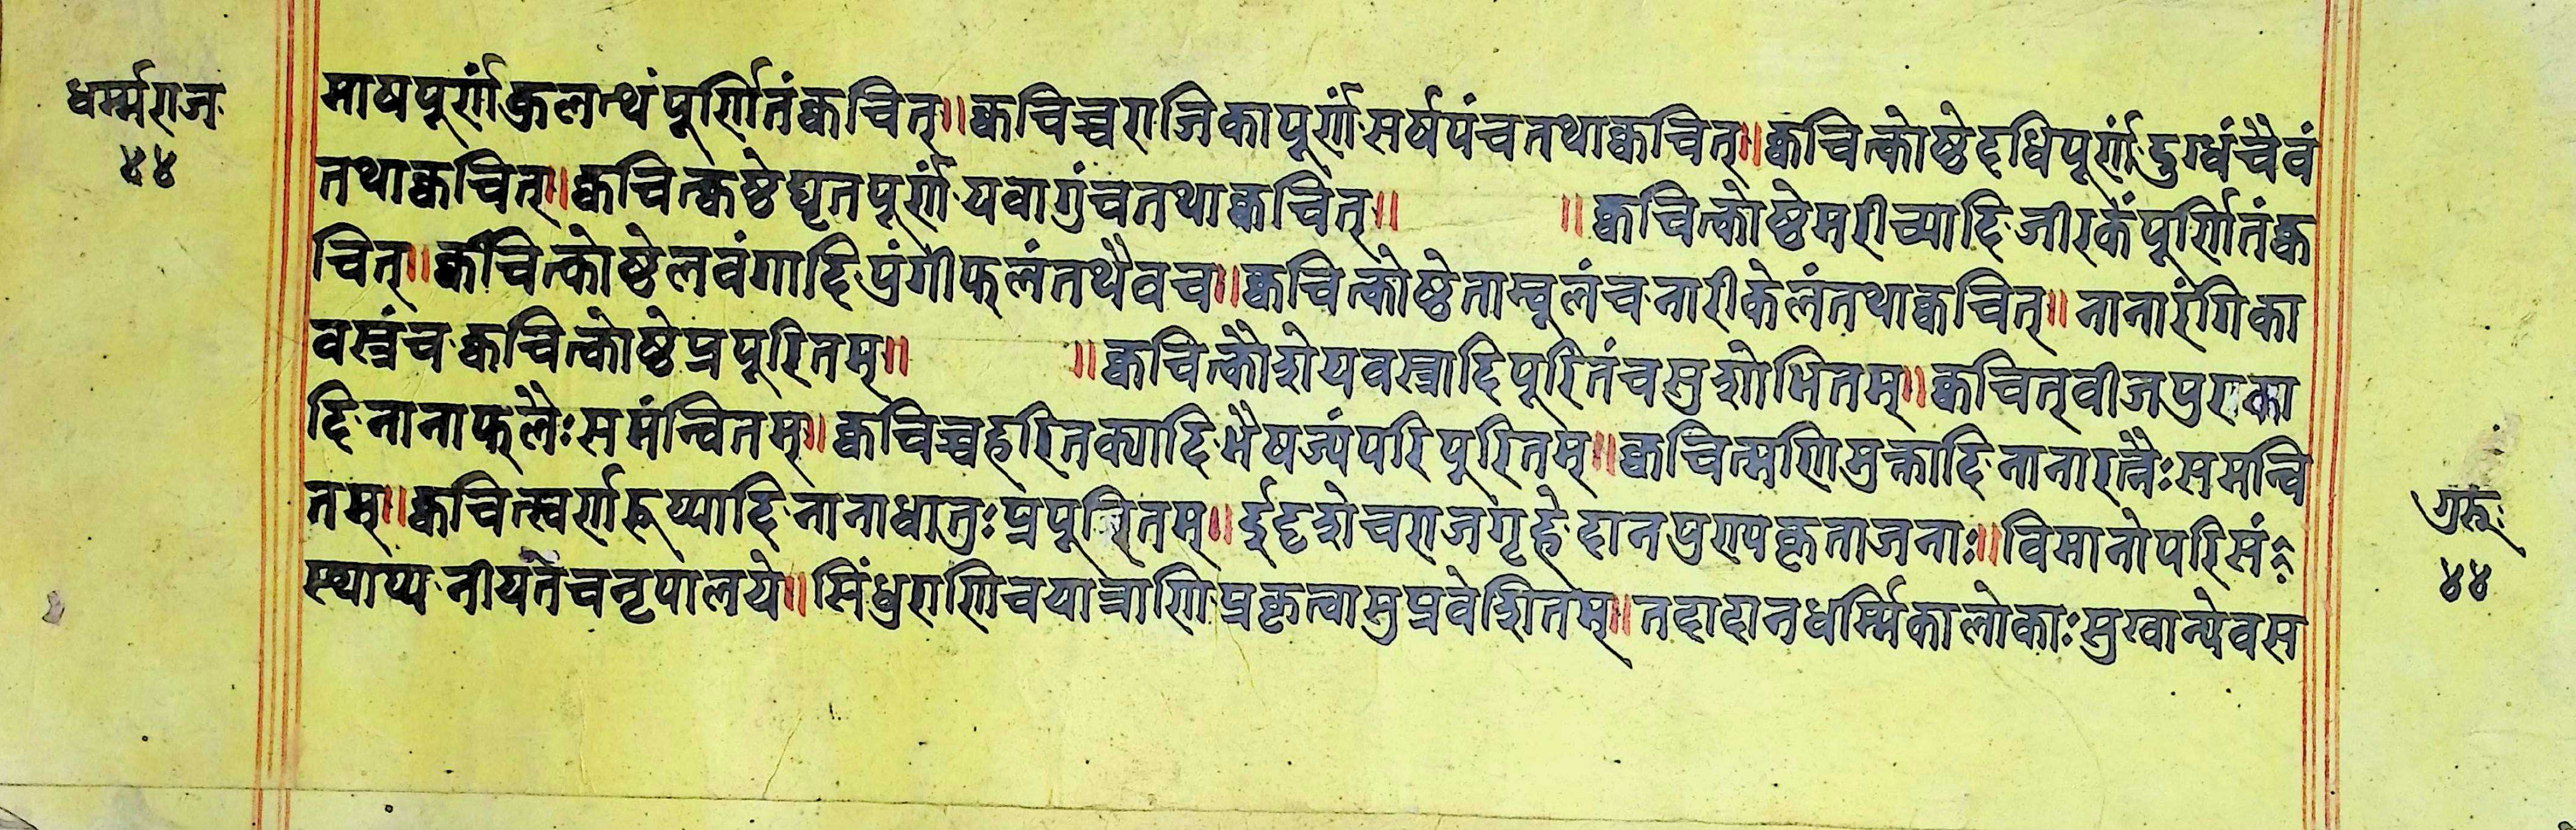 धर्म्मराज
४४
माषपूर्णं कुलत्थं पूर्णितं क्वचित् ॥ क्वचिच्च राजिकापूर्णं सर्षपं च तथा क्वचित् ॥ क्वचित्कोष्ठे दधिपूर्णं दुग्धं चैवं
तथा क्वचित् ॥ क्वचित्कष्ठे घृतपूर्णं यवागुं च तथा क्वचित् ॥ ॥ क्वचित्कोष्ठे मरीच्यादि जीरकें पूर्णितं क्व
चित् ॥ क्वचित्कोष्ठे लवंगादि पुंगीफलं तथैव च ॥ क्वचित्कोष्ठे ताम्बूलं च नारीकेलं तथा क्वचित् ॥ नानारंगिका
वस्त्रं च क्वचित्कोष्ठे प्रपूरितम् ॥ ॥ क्वचित्कौशेयवस्त्रादि पूरितं च सुशोभितम् ॥ क्वचित् वीजपुराका
दि नानाफलैः समंन्वितम् ॥ क्वचिच्च हरितक्यादि भैषज्यं परिपूरितम् ॥ क्वचित्मणिमुक्तादि नानारत्नैः समन्वि
तम् ॥ क्वचित्स्वर्णरूप्यादि नानाधातुः प्रपूरितम् ॥ र्द्दुदृशे च राजगृहे दानपुण्यकृता जनाः ॥ विमानोपरि सं
स्थाप्य नीयते च नृपालये ॥ सिंधुराणि च यात्राणि प्रकृत्वा सुप्रवेशितम् ॥ तदा दानधर्म्मिका लोकाः सुखान्येव स
गुरूः
४४